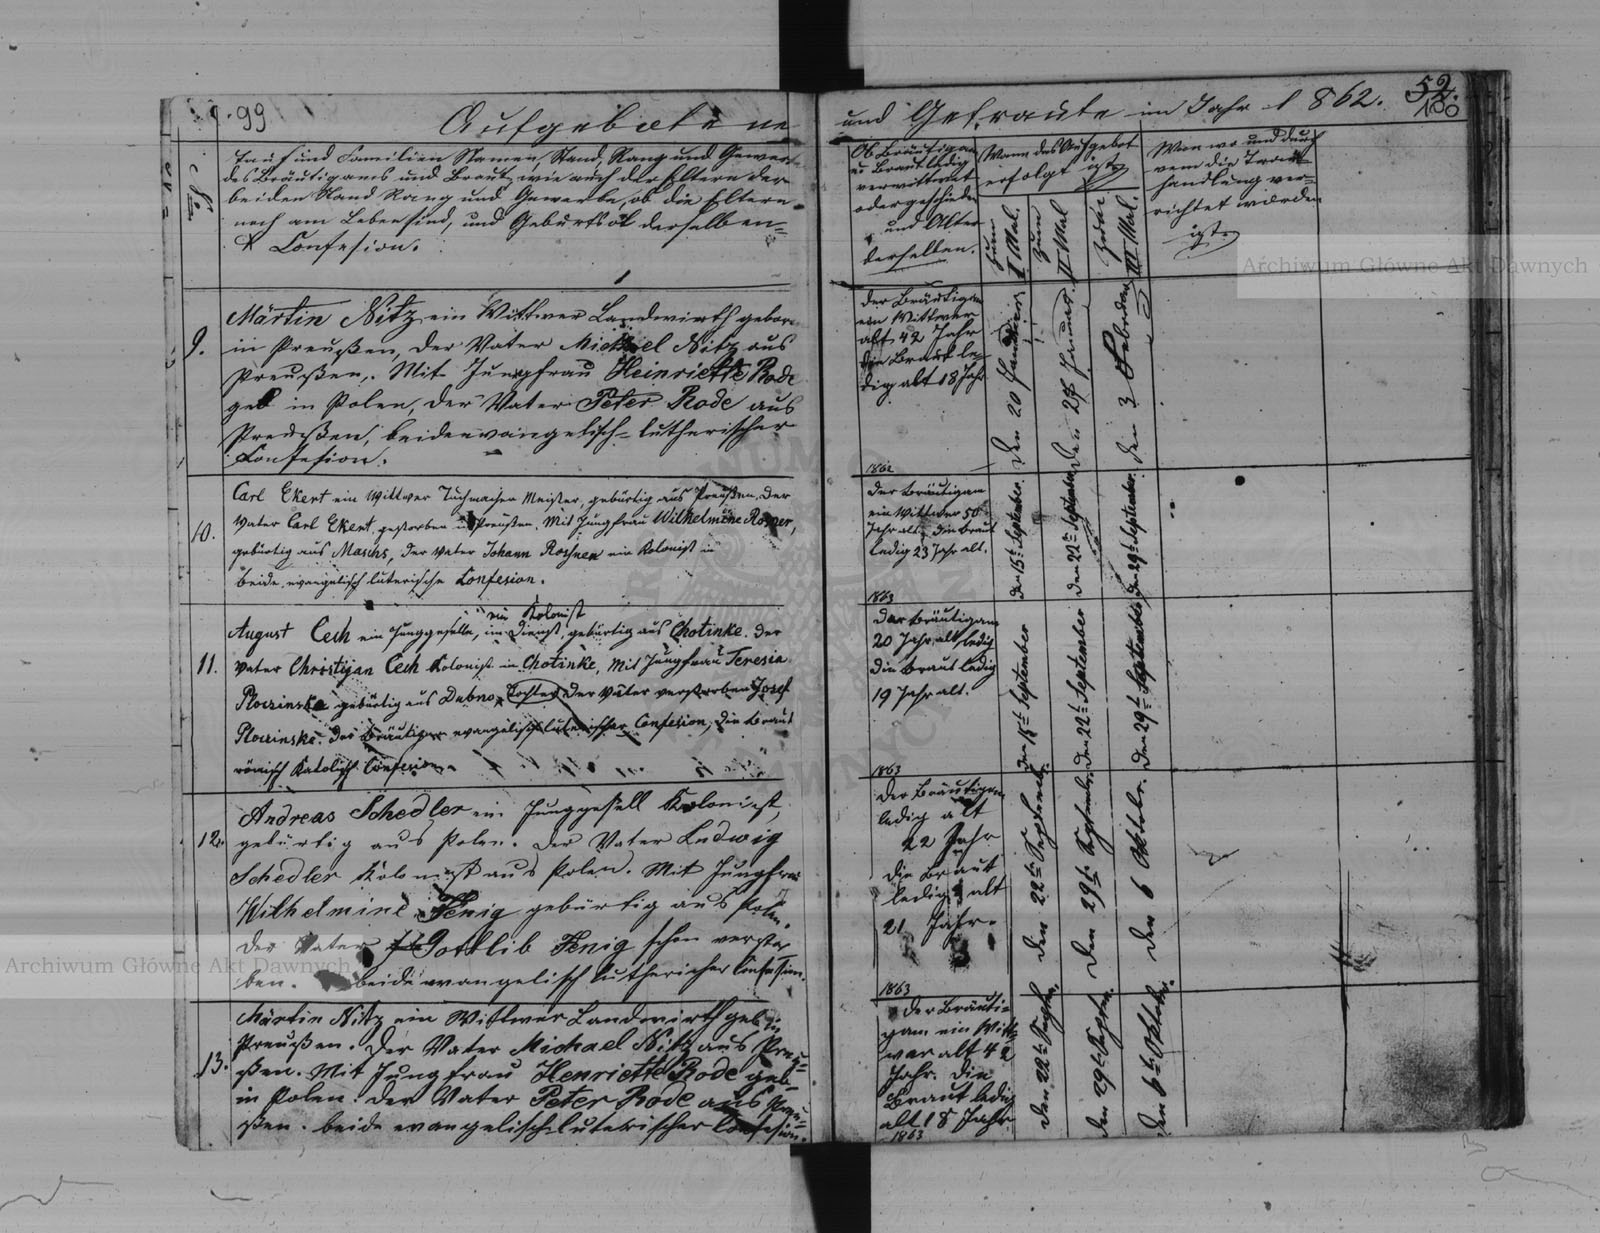 99
Aufgebotene
№
Tauf und Familien Namen, Stand, Rang und Gewerbe
des Bräutigams und Braut, wie auch der Eltern der
beiden Stand Rang und Gewerbe, ob die Eltern
noch am Leben sind, und Geburtsort derselben
Confesion.
9.
Martin Nitz ein Wittwer Landwirth gebor
in Preußen, der Vater Michael Nitz aus
Preußen. Mit Jungfrau Heinriette Rode
geb in Polen, der Vater Peter Rode aus
Preußen, beide evangelisch-lutherischer
Confesion.
10.
Carl Ekert ein Wittwer Tuchmacher Meister, gebürtig aus Preußen, der
Vater Carl Ekert gestorben in Preußen, Mit Jungfrau Wilhelmine
gebürtig aus der Vater Johann ein Kolonist in
beide evangelisch luterische Confesion.
11.
ein Kolonist
August Cech ein Junggeselle, im Dienst, gebürtig aus Chotinke. der
Vater Christijan Cech Kolonist in Chotinke, Mit Jungfrau Teresia
gebürtig aus Dubno, Tochter der Vater verstorben Josef
der Bräutigam evangelisch luterischer Confesion, die Braut
römisch Katolisch Confesion.
12.
Andreas Schedler ein Junggesell Koloniest,
gebürtig aus Polen. der Vater Ludwig
Schedler Koloniest aus Polen. Mit Jungfrau
Wilhelmine Henig gebürtig aus Polen.
der Vater Gottlib Henig schon verstor
ben. beide evangelisch lutherischer Confesion.
13.
Martin Nitz ein Wittwer Landwirth geb in
Preußen. der Vater Michael Nitz aus Preu
ßen. Mit Jungfrau Henriette Rode geb
in Polen. der Vater Peter Rode aus Preu
ßen. beide evangelisch-luterischer Confesion.
und Getraute im Jahr 1862.
52.
100
Ob Bräutigam
u. Braut ledig
verwittwet
oder geschieden
und Alter
derselben.
Wann das Aufgebot
erfolgt ist
zum I Mal.
zum II Mal
zum III Mal.
Wan wo und durch
wem die Trau
handlung ver-
richtet worden
ist
der Bräutigam
ein Wittwer
alt 42 Jahr
die Braut le-
dig alt 18 Jahr
den 20 Januar
den 27 Januar
den 3 Februar
1862
der Bräutigam
ein Wittwer 50
Jahr alt, die Braut
ledig 23 Jahr alt.
den 15ten September
den 22ten September
den 29ten September
1863
der Bräutigam
20 Jahr alt ledig
die Braut ledig
19 Jahr alt.
den 15ten September
den 22ten September
den 29ten September
1863
der Bräutigam
ledig alt
22 Jahr
die Braut
ledig alt
21 Jahr.
den 22ten September
den 29ten September
den 6 Oktober.
1863
der Bräuti-
gam ein Witt-
war alt 42
Jahr. die
Braut ledig
alt 18 Jahr
den 22ten Septem.
den 29ten Septem.
den 6ten Oktober.
1863
Archiwum Główne Akt Dawnych
Archiwum Główne Akt Dawnych